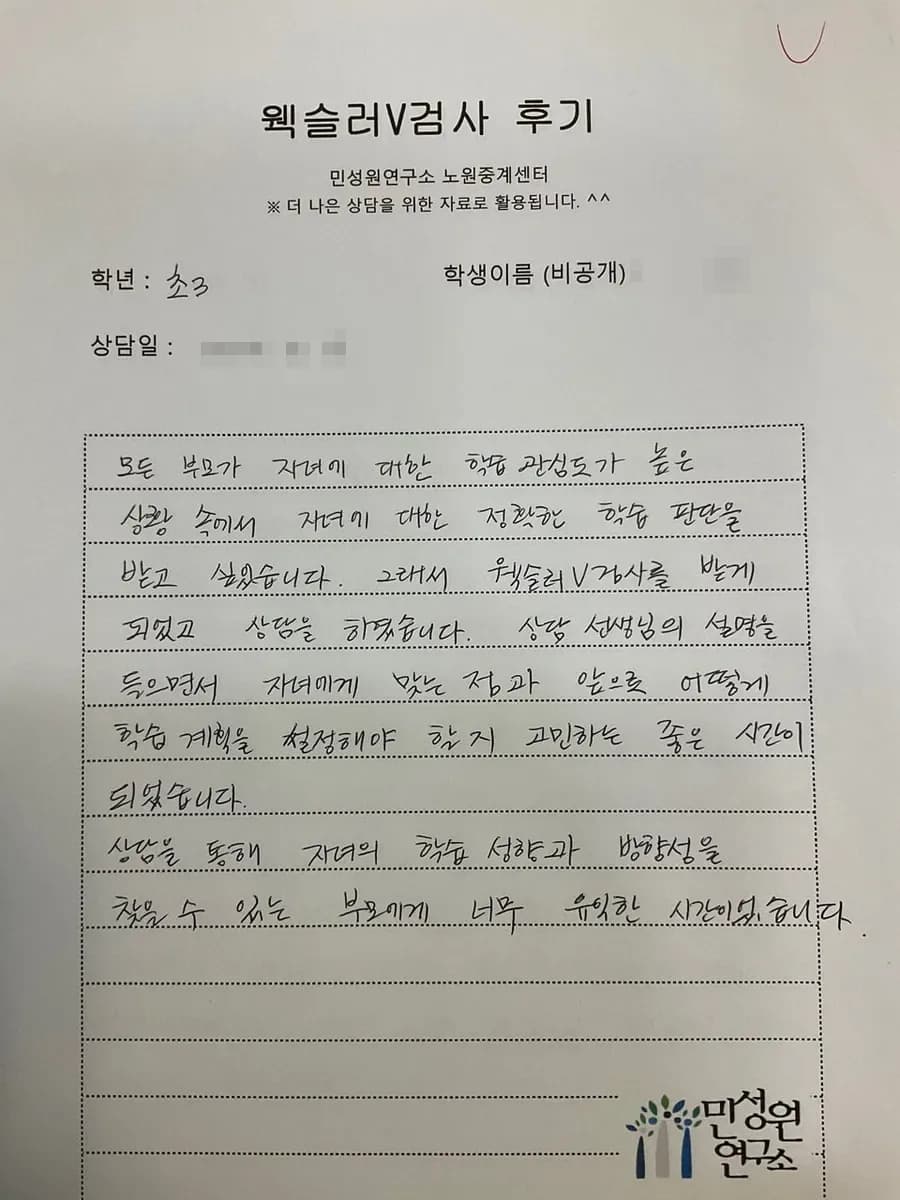 웩슬러V검사 후기
민성원연구소 노원중계센터
※ 더 나은 상담을 위한 자료로 활용됩니다. ^^
학년 : 초3 학생이름 (비공개)
상담일 :
모든 부모가 자녀에 대한 학습 관심도가 높은
상황 속에서 자녀에 대한 정확한 학습 판단을
받고 싶었습니다. 그래서 웩슬러V검사를 받게
되었고 상담을 하였습니다. 상담 선생님의 설명을
들으면서 자녀에게 맞는 점과 앞으로 어떻게
학습 계획을 설정해야 할지 고민하는 좋은 시간이
되었습니다.
상담을 통해 자녀의 학습 성향과 방향성을
찾을 수 있는 부모에게 너무 유익한 시간이었습니다.
민성원
연구소